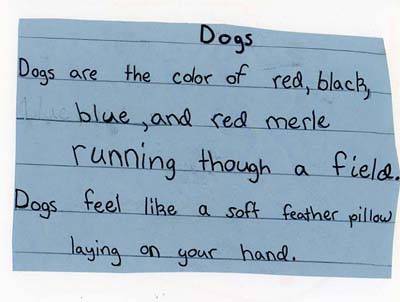 Dogs
Dogs are the color of red, black,
blue, and red merle
running though a field.
Dogs feel like a soft feather pillow
laying on your hand.